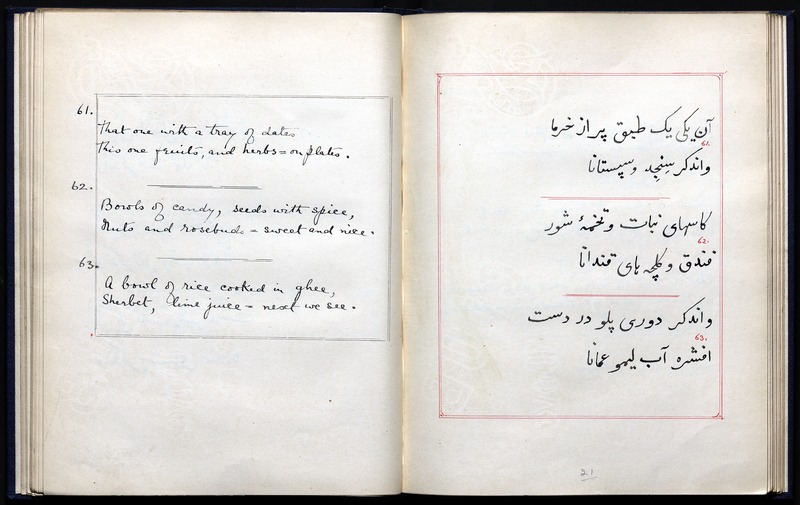 61.
That one with a tray of dates
This one fruits, and herbs = on plates.
62.
Bowls of candy, seeds with spice,
Nuts and rosebuds = sweet and nice.
63.
A bowl of rice cooked in ghee,
Sherbet, lime juice = next we see.
آن یکی یک طبق پر از خرما
61.
واندکر سِنجِد و سپستانا
کاسهای نبات و تخمهٔ شور
62.
فندق و کلچه های قندانا
واندکر دوری پلو در دست
63.
افشره آب لیمو عمانا
21